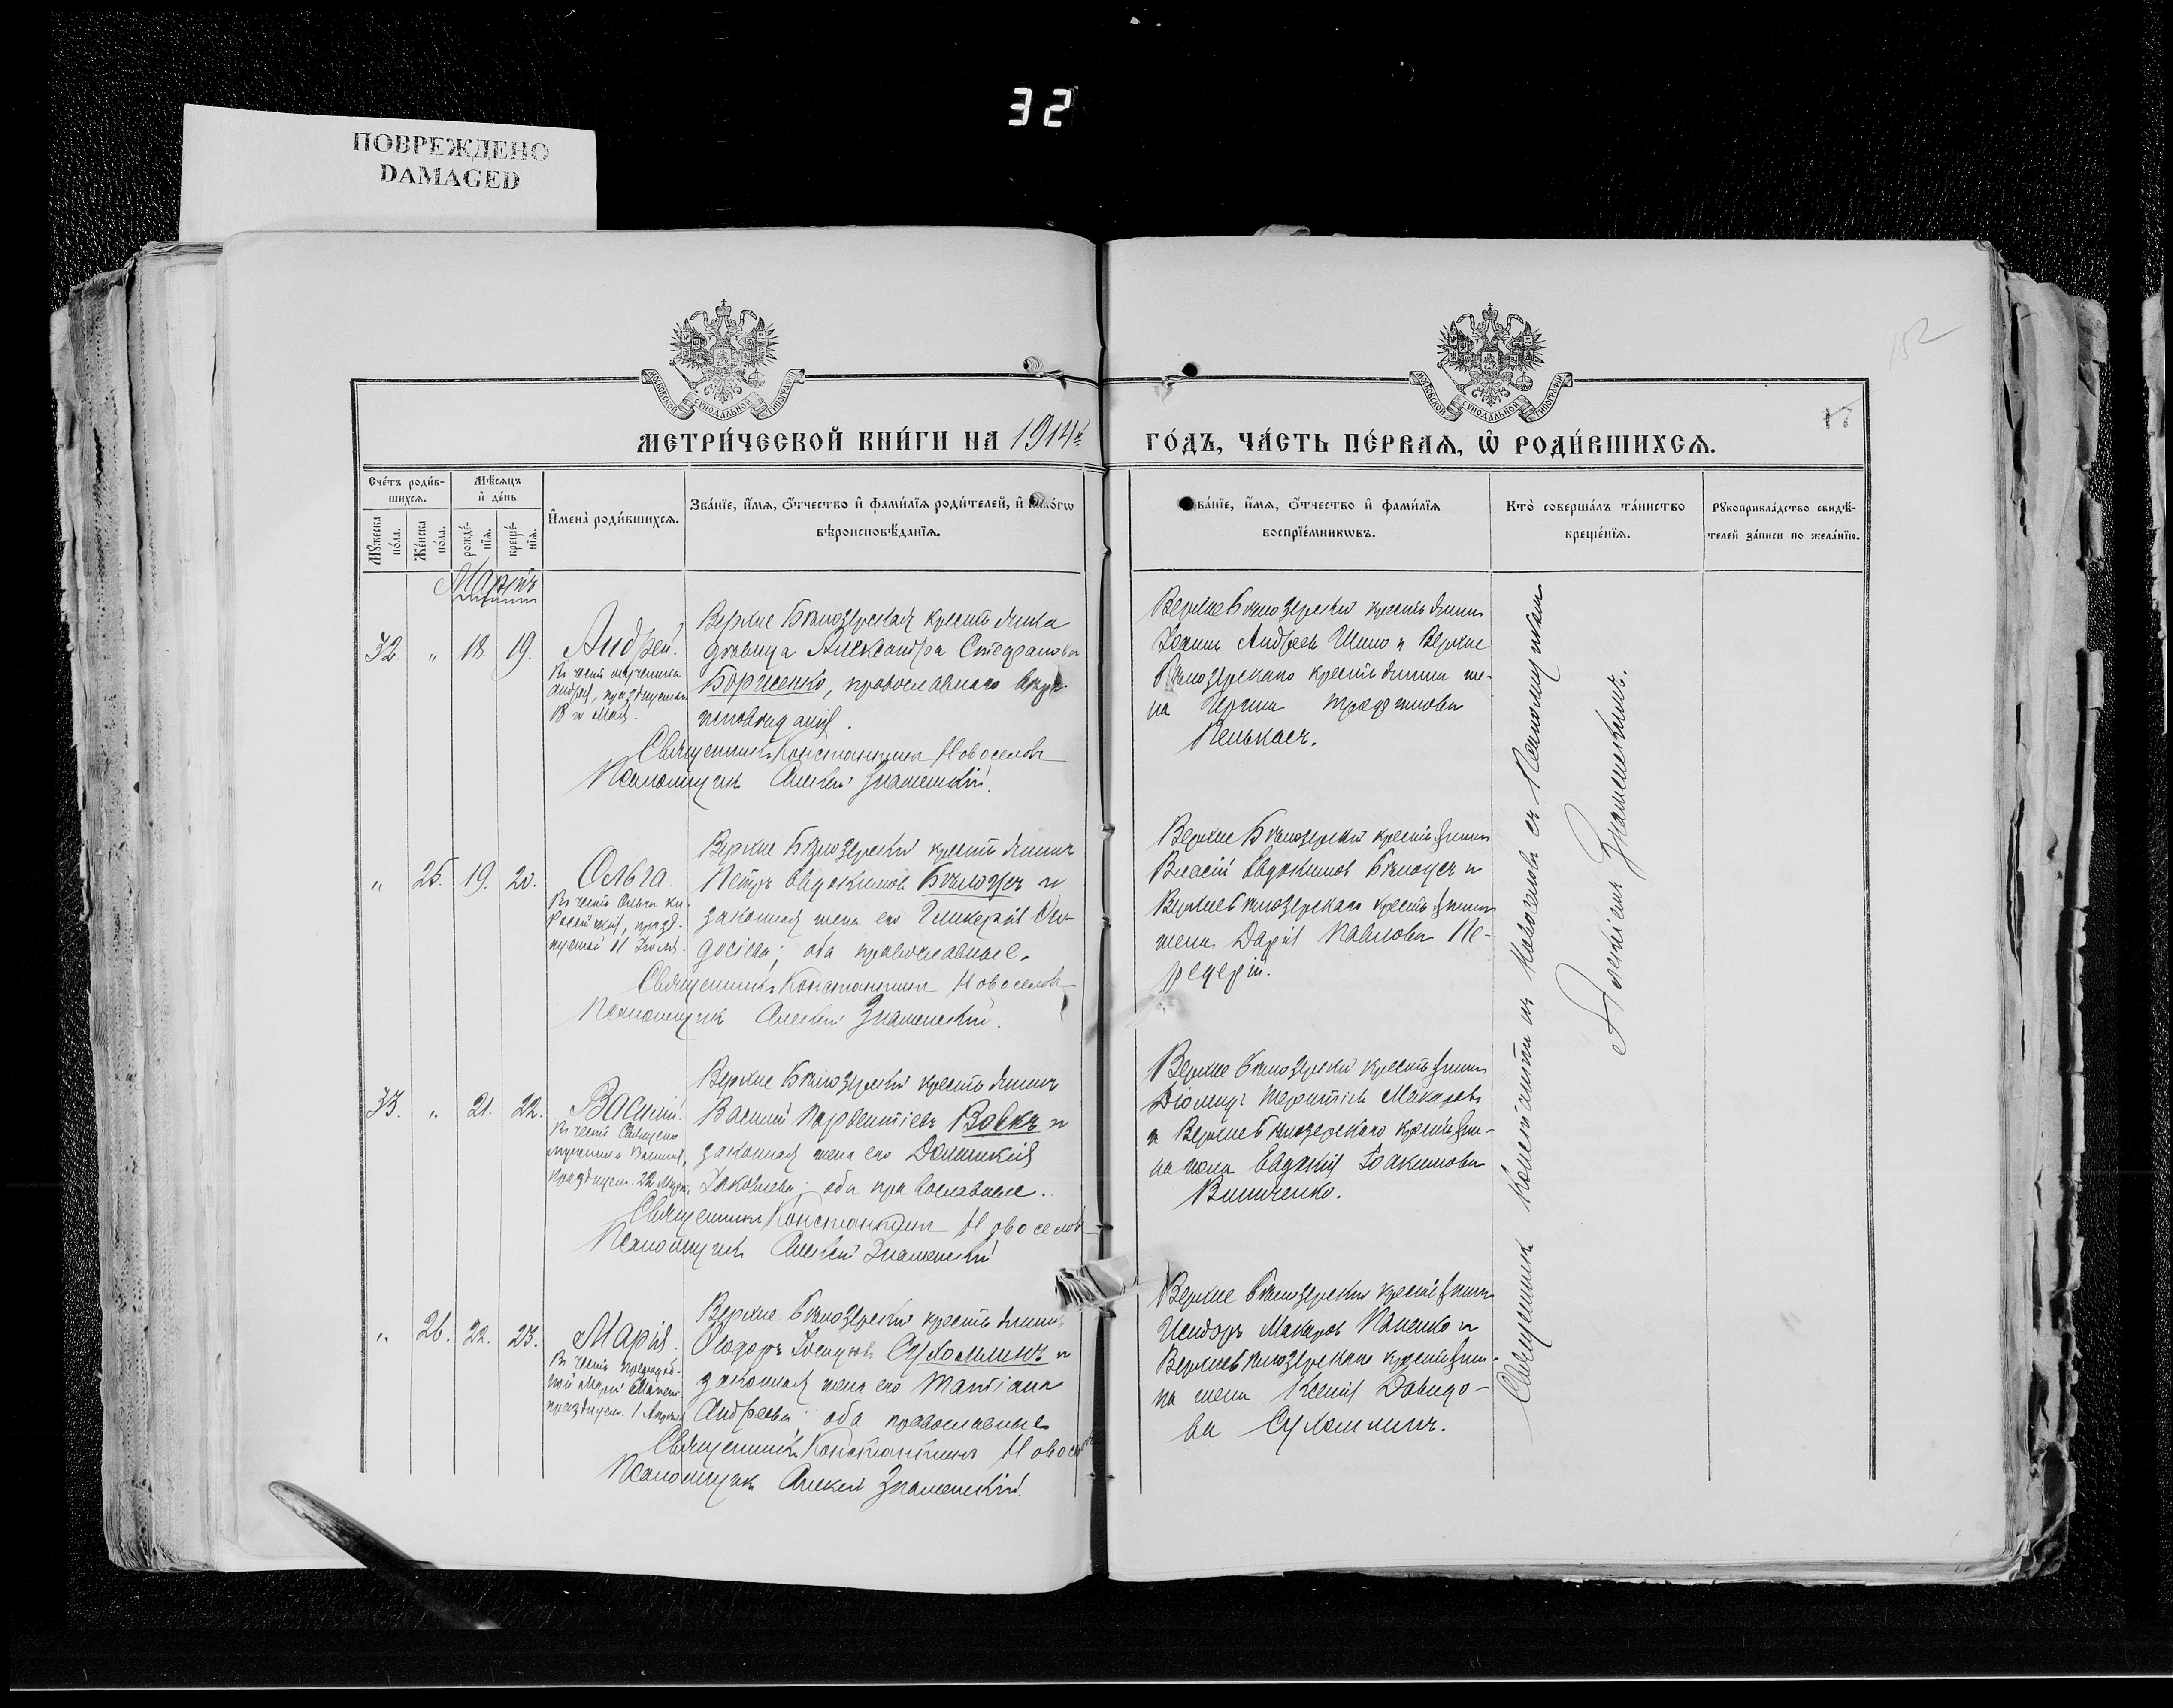 32
ПОВРЕЖДЕНО
DAMAGED
152
МОСКОВСКОЙ СѴНОДАЛЬНОЙ ТИПОГРАФІИ
МОСКОВСКОЙ СѴНОДАЛЬНОЙ ТИПОГРАФІИ
МЕТРИ́ЧЕСКОЙ КНИ́ГИ НА 1914й
ГО́ДЪ, ЧА́СТЬ ПЕ́РВАѦ, Ѡ҆ РОДИ́ВШИХСѦ.
Сче́тъ роди́в-
шихсѧ.
Мꙋ́жеска по́ла.
Же́нска по́ла.
Мѣ́сѧцъ
и҆ де́нь
рожде́-
нїѧ.
креще́-
нїѧ.
И҆мена̀ роди́вшихсѧ.
Зва́нїе, и҆́мѧ, ѻ҆́тчество и҆ фами́лїѧ роди́телей, и҆
вѣроисповѣ́данїѧ.
и҆́мѧ, ѻ҆́тчество и҆ фами́лїѧ
воспрїе́мникѡвъ.
Кто̀ соверша́лъ та́инство
креще́нїѧ.
Рꙋкоприкла́дство свидѣ́-
телей за́писи по жела́нїю.
Мартъ
32. " 18. 19. Андрей.
Въ честь мученика
Андрея, празднуемаго
18 го Мая.
Верхне Бѣлозерская крестьянка
дѣвица Александра Стефанова
Борисенко, православнаго вѣро-
исповѣданія.
Священникъ Константинъ Новоселовъ
Псаломщикъ Алексѣй Знаменскій.
Верхнебѣлозерскій крестьянинъ
Іоаннъ Андреевъ Шило и Верхне
Бѣлозерскаго крестьянина же-
на Ирина
" 25. 19. 20. Ольга.
Въ честь Ольги кн.
Россійской, празд-
нуемой 11 Іюля.
Верхне Бѣлозерскій крестьянинъ
Петръ Евдокимовъ Бѣлоусъ и
законная жена его Гликерія Ѳео-
досіева; оба православные.
Священникъ Константинъ Новоселовъ
Псаломщикъ Алексѣй Знаменскій.
Верхне Бѣлозерскій крестьянинъ
Власій Евдокимовъ Бѣлоусъ и
Верхнебѣлозерскаго крестьянина
жена Дарія Павлова Пе-
редерій.
33. " 21. 22. Василій.
Въ честь Священно
мученика Василія,
празднуем. 22 Марта.
Верхне Бѣлозерскій крестьянинъ
Василій Парѳентіевъ Вовкъ и
законная жена его Домникія
Іаковлева; оба православные.
Священникъ Константинъ Новоселовъ
Псаломщикъ Алексѣй Знаменскій
Верхне Бѣлозерскій крестьянинъ
Діомидъ Терентіевъ Макаровъ
и Верхнебѣлозерскаго крестьяни-
на жена Евдокія Іоакимова
Винниченко.
" 26. 22. 23. Марія.
Въ честь преподоб-
ной Маріи Египет.
празднуем. 1 Апрѣля.
Верхне Бѣлозерскій крестьянинъ
Ѳеодоръ Іосифовъ Сухомлинъ и
законная жена его Татіана
Андреева; оба православные
Священникъ Константинъ Новоселовъ
Псаломщикъ Алексѣй Знаменскій.
Верхне Бѣлозерскій крестьянинъ
Исидоръ Макаровъ Паненко и
Верхнебѣлозерскаго крестьяни-
на жена Ксенія Давидо-
ва Сухомлинъ.
Священникъ Константинъ Новоселовъ съ Псаломщикомъ
Алексіемъ Знаменскимъ.